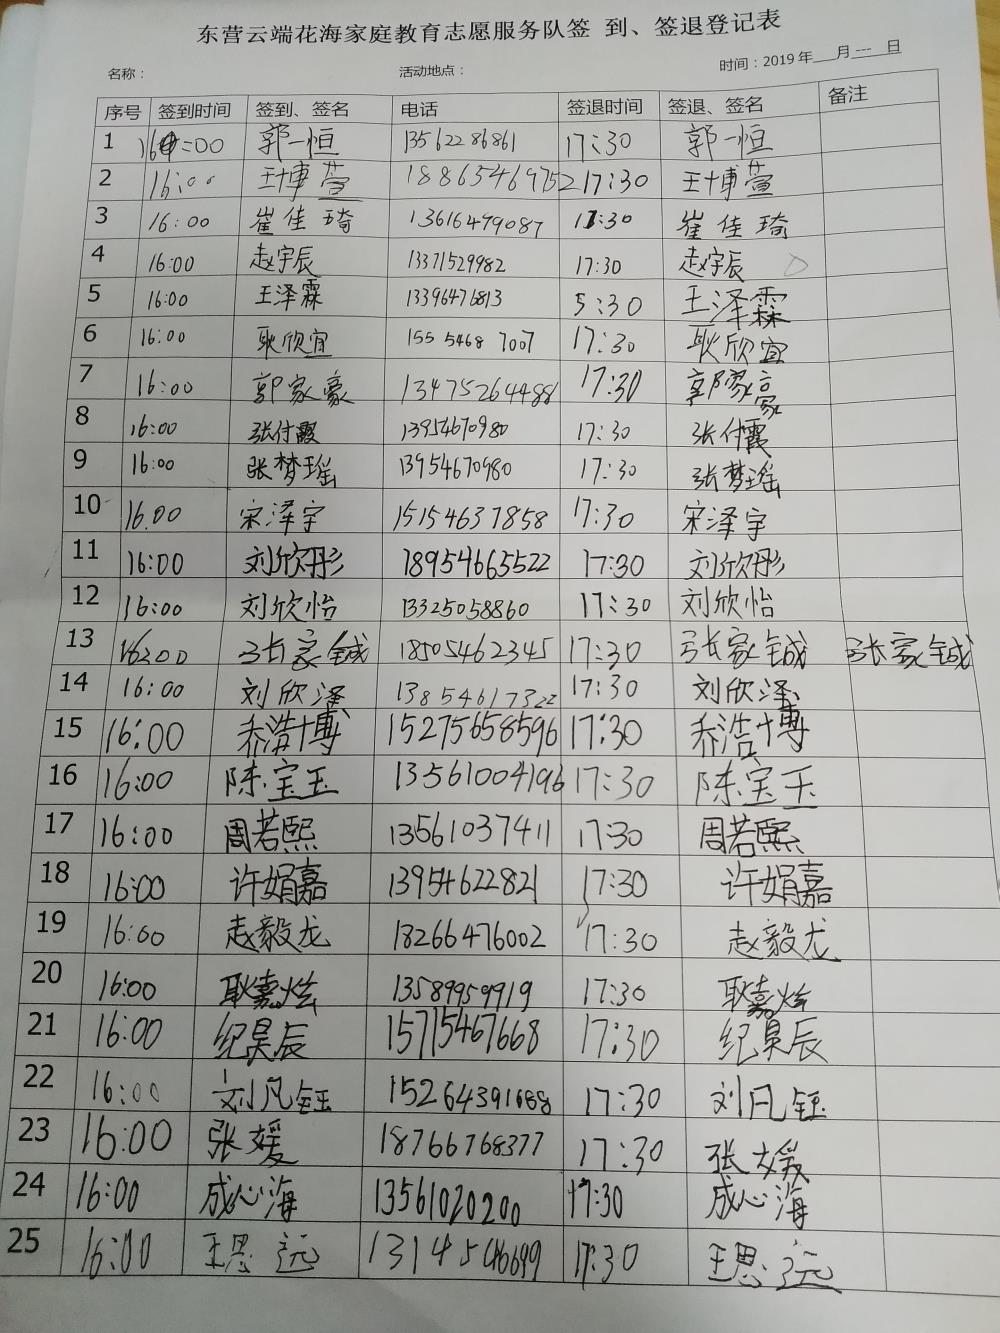 东营云端花海家庭教育志愿服务队签 到、签退登记表
名称： 活动地点： 时间：2019 年___月---日
序号 签到时间 签到、签名 电话 签退时间 签退、签名 备注
1 16:00 郭一恒 13562286861 17:30 郭一恒
2 16:00 王博萱 18865469752 17:30 王博萱
3 16:00 崔佳琦 13616479087 17:30 崔佳琦
4 16:00 赵宇辰 13371529982 17:30 赵宇辰
5 16:00 王泽霖 13396476813 5:30 王泽霖
6 16:00 耿欣宜 155 5468 7007 17:30 耿欣宜
7 16:00 郭家豪 13475264488 17:30 郭家豪
8 16:00 张付霞 13954670980 17:30 张付霞
9 16:00 张梦瑶 13954670980 17:30 张梦瑶
10 16.00 宋泽宇 15154637858 17:30 宋泽宇
11 16:00 刘欣彤 18954665522 17:30 刘欣彤
12 16:00 刘欣怡 13325058860 17:30 刘欣怡
13 16:00 张家铖 18505462345 17:30 张家铖 张家铖
14 16:00 刘欣泽 13854617322 17:30 刘欣泽
15 16:00 乔浩博 15275658596 17:30 乔浩博
16 16:00 陈宝玉 13561004196 17:30 陈宝玉
17 16:00 周若熙 13561037411 17:30 周若熙
18 16:00 许娟嘉 13954622821 17:30 许娟嘉
19 16:00 赵毅龙 18266476002 17:30 赵毅龙
20 16:00 耿嘉炫 13589959919 17:30 耿嘉炫
21 16:00 纪昊辰 15715467668 17:30 纪昊辰
22 16:00 刘凡钰 15264391688 17:30 刘凡钰
23 16:00 张媛 18766768377 17:30 张媛
24 16:00 成心海 13561020200 17:30 成心海
25 16:00 王思远 13145446699 17:30 王思远